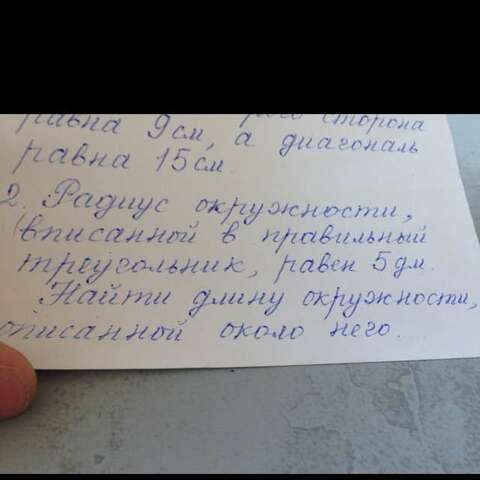 равна 9см, а диагональ сторона
равна 15см.
2. Радиус окружности,
вписанной в правильный
треугольник, равен 5дм.
Найти длину окружности,
описанной около него.